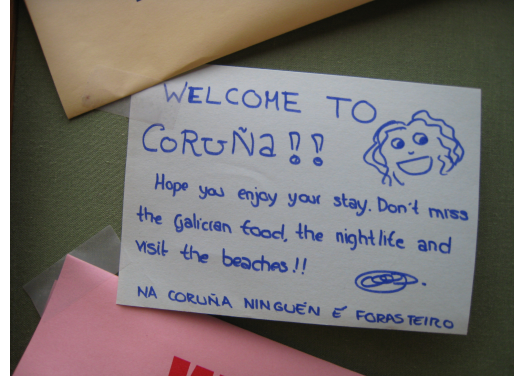 WELCOME TO
CORUÑA!!
Hope you enjoy your stay. Don't miss
the Galician food, the nightlife and
visit the beaches!!
NA CORUÑA NINGUÉN É FORASTEIRO